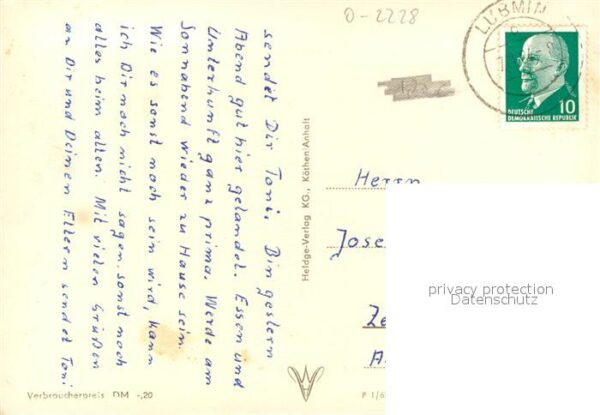 O-2228
LUBMIN
DEUTSCHE
DEMOKRATISCHE REPUBLIK
10
sendet Dir Toni. Bin gestern
Abend gut hier gelandet. Essen und
Unterkunft ganz prima. Werde am
Sonnabend wieder zu Hause sein.
Wie es sonst noch sein wird, kann
ich Dir noch nicht sagen. Sonst noch
alles beim alten. Mit vielen Grüßen
an Dir und Deinen Eltern sendet Toni
Heldge-Verlag KG., Köthen/Anhalt
Herrn
Jose
privacy protection
Datenschutz
Verbraucherpreis DM -,20
P 1/6